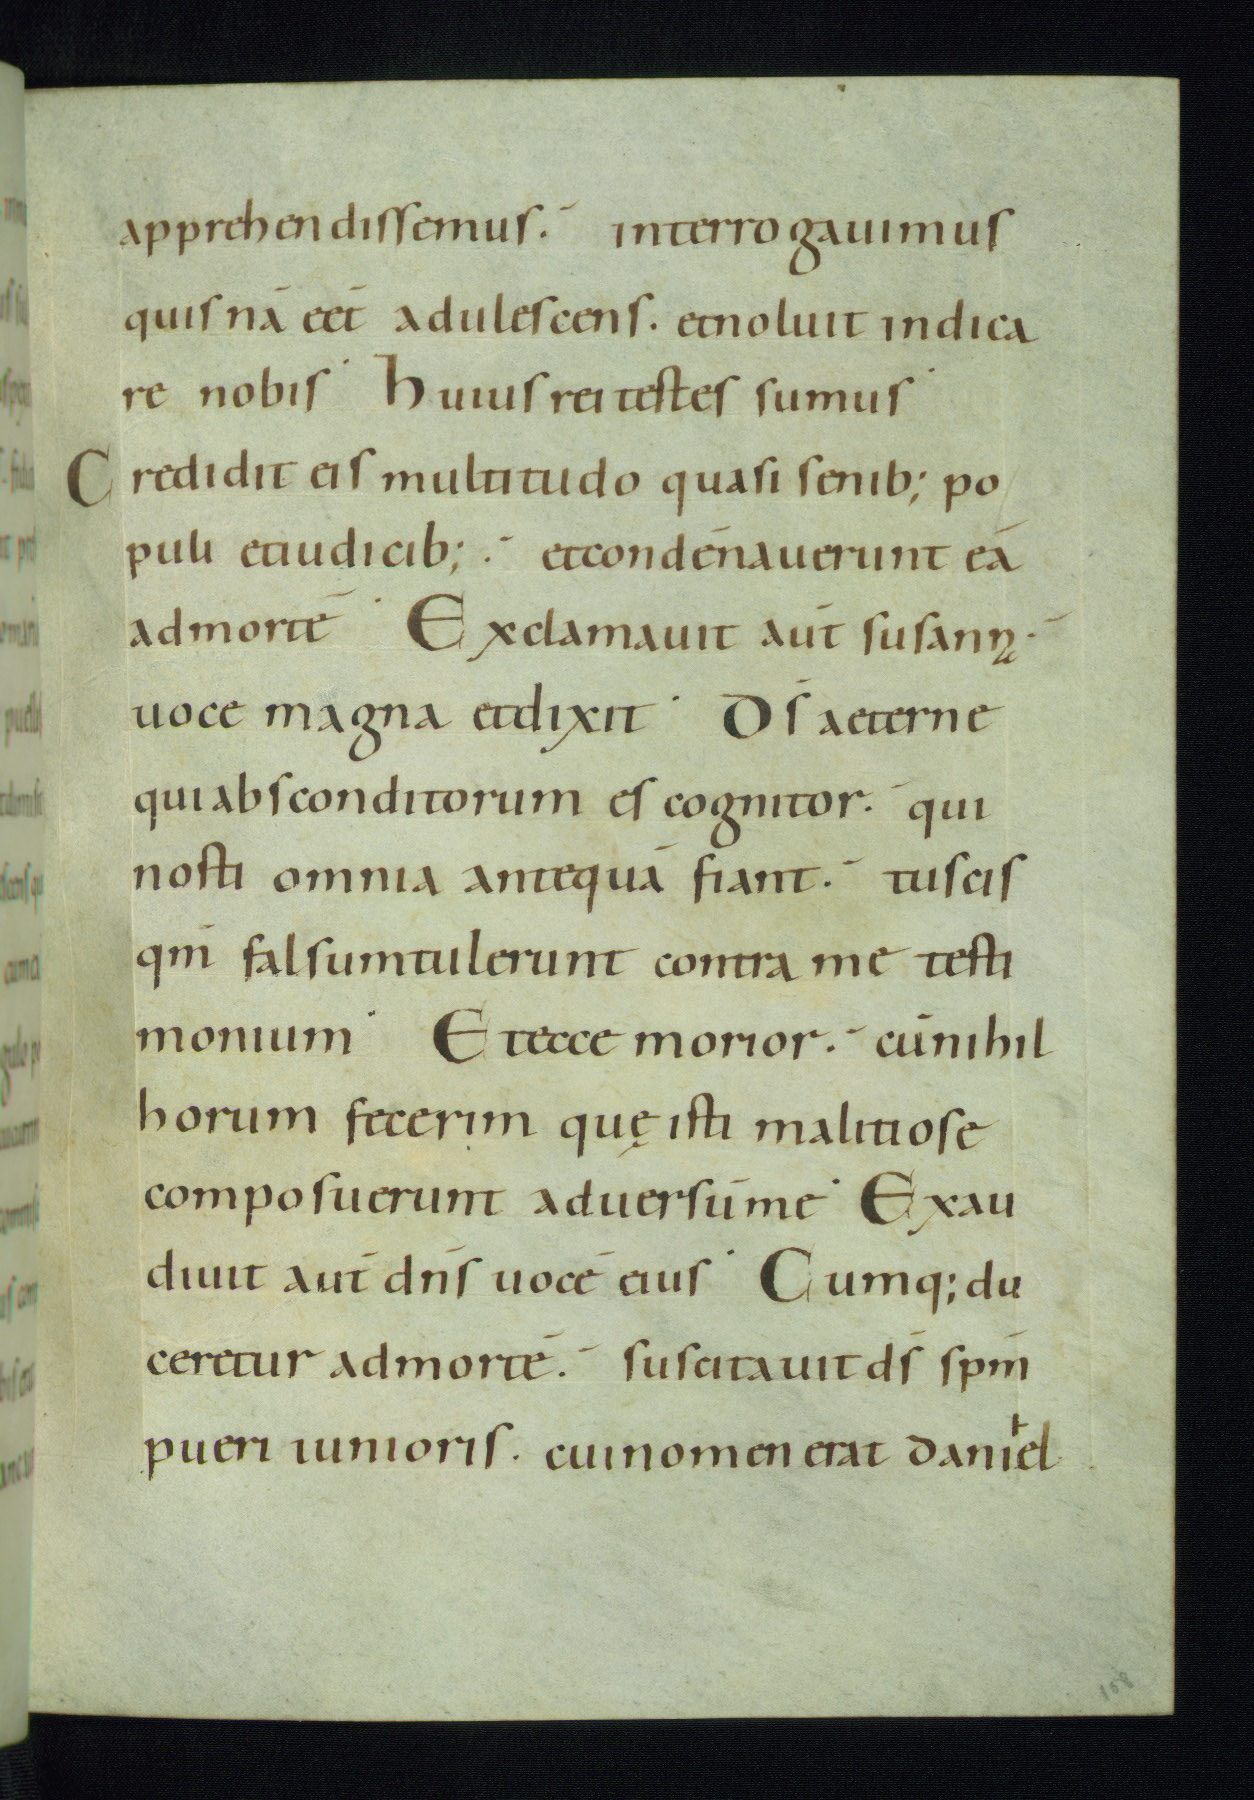 apprehendissemus. interrogauimus
quis nā eēt adulescens. et noluit indica
re nobis. Huius rei testes sumus.
Credidit eis multitudo quasi senib; po
puli et iudicib;. et condēnauerunt eā
ad mortē. Exclamauit aūt susannę.
uoce magna et dixit. Dš aeterne
qui absconditorum es cognitor. qui
nosti omnia antequā fiant. tu scis
qm̄ falsum tulerunt contra me testi
monium. Et ecce morior. cū nihil
horum fecerim quę isti malitiose
composuerunt aduersū me. Exau
diuit aūt dn̄s uocē eius. Cumq; du
ceretur ad mortē. suscitauit dš spm̄
pueri iunioris. cui nomen erat daniel
158